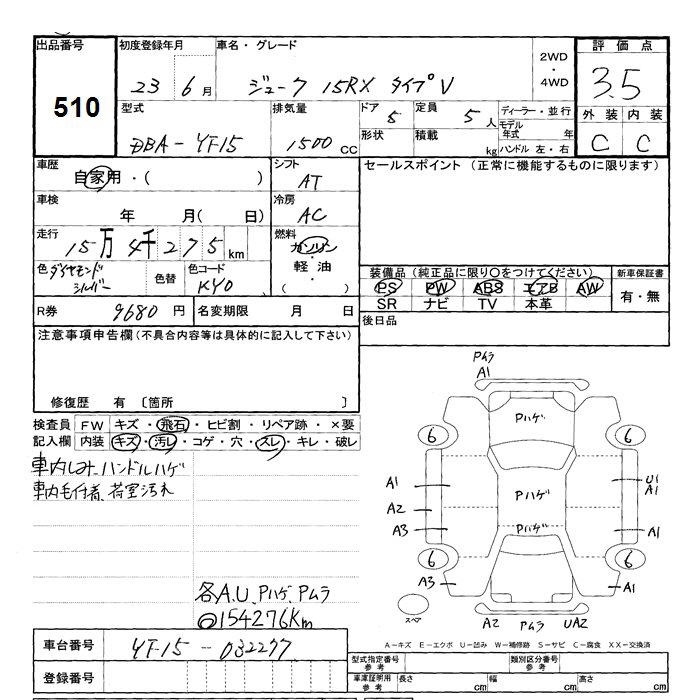 出品番号 初度登録年月 車名・グレード 2WD・4WD 評価点
510 23 6月 ジューク 15RX タイプV 3.5
型式 排気量 ドア 5 定員 5人 ディーラー・並行 外装 内装
DBA-YF15 1500 CC 形状 積載 kg モデル年式 年 C C
ハンドル 左・右
車歴 自家用・( ) シフト AT セールスポイント (正常に機能するものに限ります)
車検 年 月( 日) 冷房 AC
走行 15万4千275km 燃料 ガソリン・軽油・( )
色 ダイヤモンドシルバー 色替 色コード KY0 装備品 (純正品に限り○をつけてください) 新車保証書
PS PW ABS エアB AW 有・無
SR ナビ TV 本革
R券 9680円 名変期限 月 日 後日品
注意事項申告欄(不具合内容等は具体的に記入して下さい)
修復歴 有 〔箇所
検査員 FW キズ・飛石・ヒビ割・リペア跡・×要
記入欄 内装 キズ・汚レ・コゲ・穴・スレ・キレ・破レ
車内しみ、ハンドルハゲ
車内毛付着、荷室汚れ
各A.U、Pハゲ、Pムラ
154276Km
Pムラ
A1
Pハゲ
6 6
A1 Pハゲ U1
A1
A2
A3 Pハゲ A1
6 6
A3 A1
スペア A2 Pムラ UA2
車台番号 YF15-032277
登録番号
A-キズ E-エクボ U-凹み W-補修跡 S-サビ C-腐食 XX-交換済
型式指定番号 参考 類別区分番号 参考
車庫証明用 参考 長さ cm 幅 cm 高さ cm